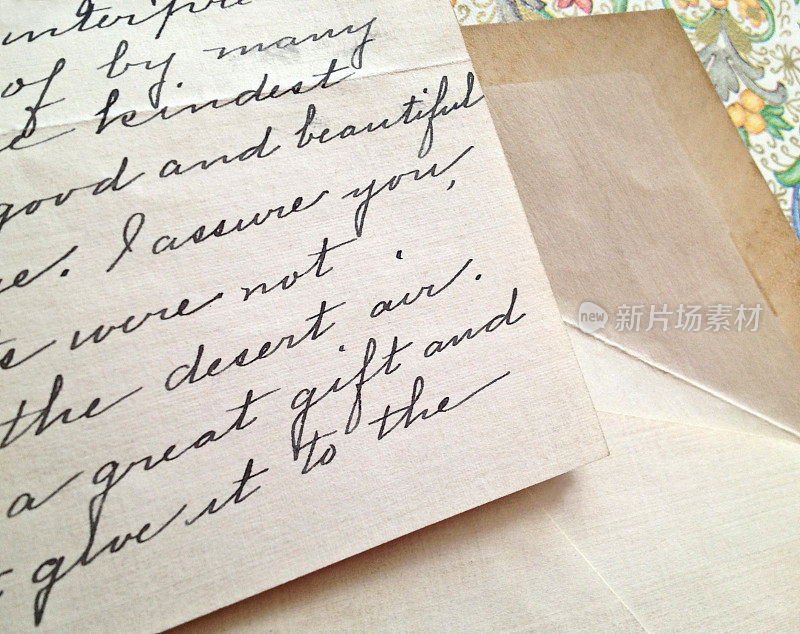 of by many
kindest
good and beautiful
I assure you,
were not
the desert air.
a great gift and
give it to the
new 新片场素材